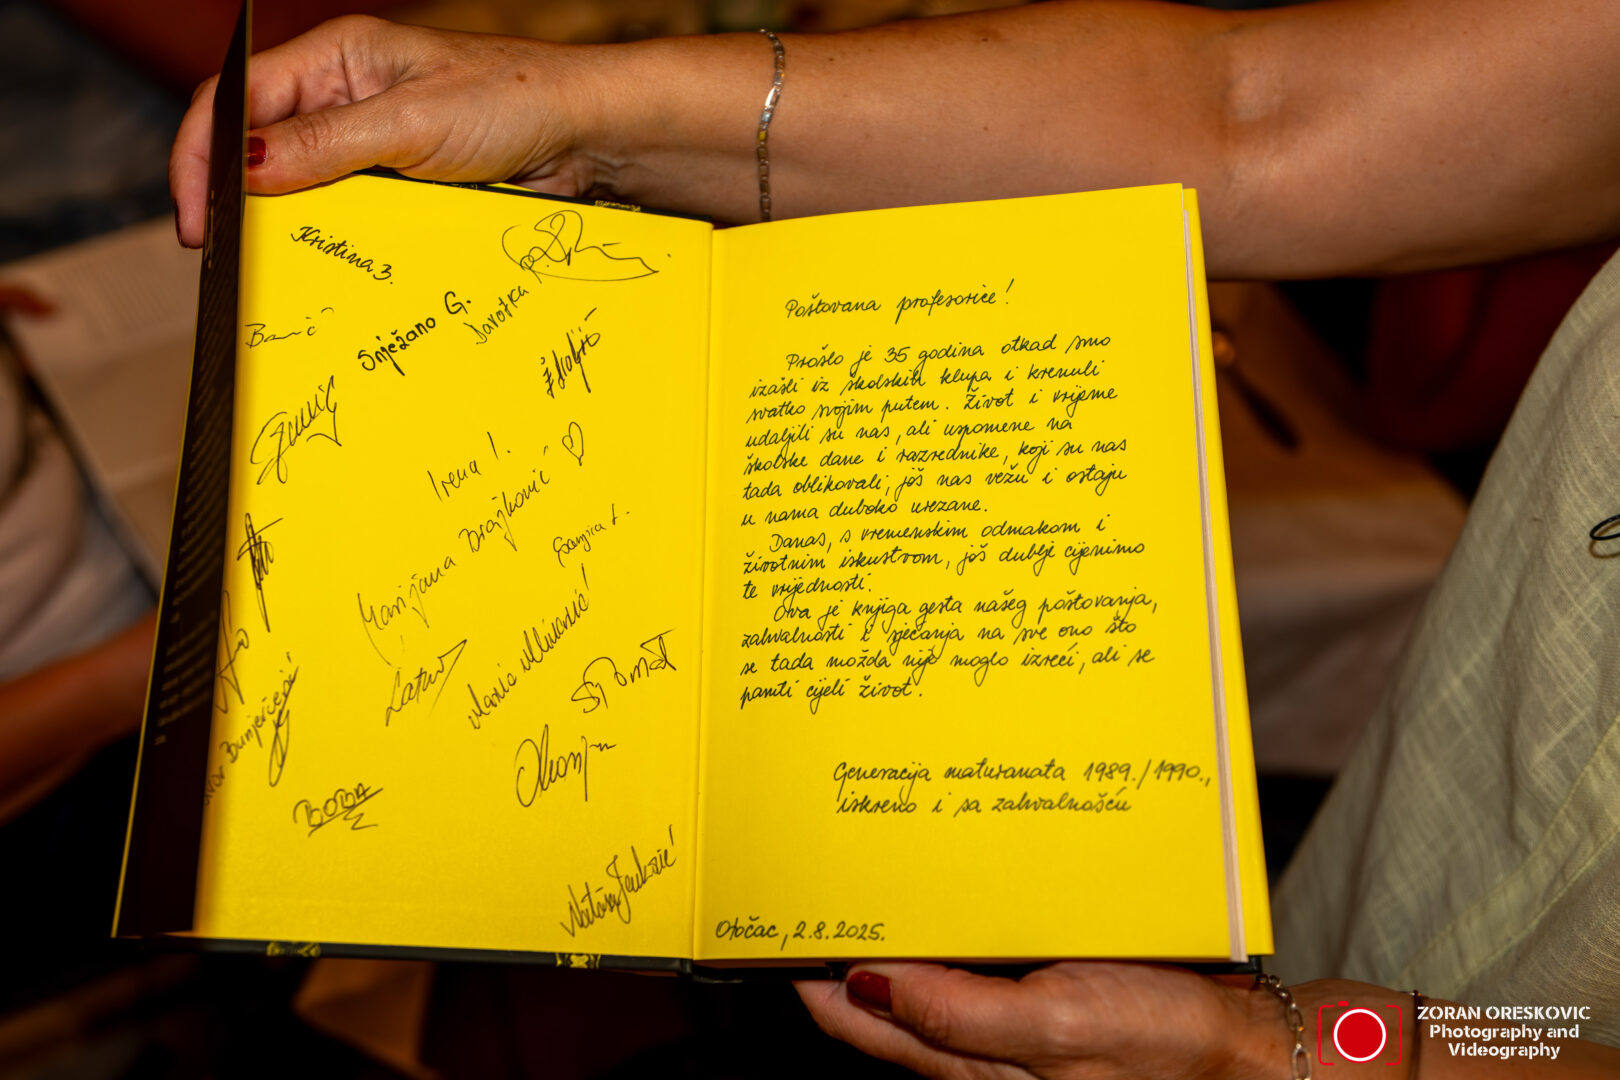 Kristina B.
Banić
Snježana G.
Davorka
Irena I.
Marijana Brajković
Sanjica L.
Maria
BOBA
Nataša
Poštovana profesorice!
Prošlo je 35 godina otkad smo
izašli iz školskih klupa i krenuli
svatko svojim putem. Život i vrijeme
udaljili su nas, ali uspomene na
školske dane i razrednike, koji su nas
tada oblikovali, još nas vežu i ostaju
u nama duboko urezane.
Danas, s vremenskim odmakom i
životnim iskustvom, još dublje cijenimo
te vrijednosti.
Ova je knjiga gesta našeg poštovanja,
zahvalnosti i sjećanja na sve ono što
se tada možda nije moglo izreći, ali se
pamti cijeli život.
Generacija maturanata 1989./1990.,
iskreno i sa zahvalnošću
Otočac, 2.8.2025.
ZORAN ORESKOVIC
Photography and
Videography